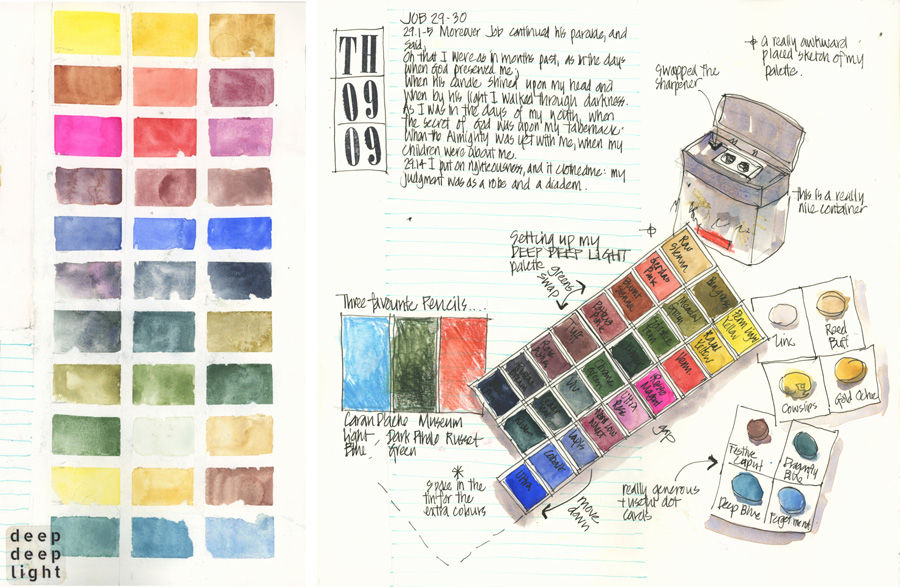 deep
deep
light
TH
09
09
JOB 29-30
29.1-5 Moreover Job continued his parable, and
said,
Oh that I were as in months past, as in the days
when God preserved me,
When his candle shined upon my head and
when by his light I walked through darkness.
As I was in the days of my youth, when
the secret of God was upon my tabernacle.
When the Almighty was yet with me, when my
children were about me.
29.14 I put on righteousness, and it clothed me: my
judgment was as a robe and a diadem.
a really awkward
placed sketch of my
palette.
swapped the
sharpener
This is a really
nice container
Setting up my
DEEP DEEP LIGHT
palette greens
swap
Three favourite Pencils....
Caran D'ache Museum
Light Dark Phthalo Russet
Blue, Green
space in the
tin for the
extra colours
move
down
gap
really generous
+ useful dot
cards
Raw
Sienna
Pink
Burnt
Sienna
Potters
Pink
Fern Light
Yellow
Yellow
Rose
Magenta
Ultra
Cobalt
Zinc
Reed
Buff
Cowslips
Gold Ochre
Festive
Caput
Dragonfly
Blue
Deep Blue
Forget me not